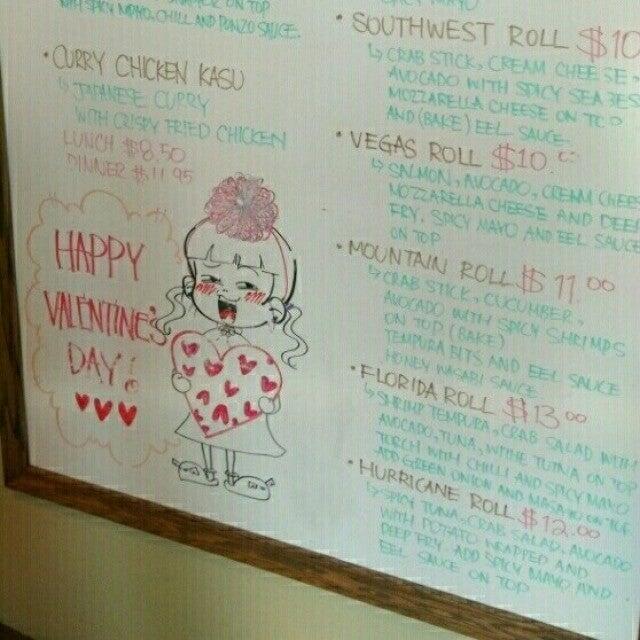 WITH SPICY MAYO, CHILI AND PONZU SAUCE.
• CURRY CHICKEN KASU
JAPANESE CURRY
WITH CRISPY FRIED CHICKEN
LUNCH $8.50
DINNER $11.95
HAPPY
VALENTINE'S
DAY!
• SOUTHWEST ROLL $10
CRAB STICK, CREAM CHEESE
AVOCADO WITH SPICY SEA
MOZZARELLA CHEESE ON TOP
AND (BAKE) EEL SAUCE
• VEGAS ROLL $10.00
SALMON, AVOCADO, CREAM CHEES
MOZZARELLA CHEESE AND DEEP
FRY, SPICY MAYO AND EEL SAUCE
ON TOP
• MOUNTAIN ROLL $11.00
CRAB STICK, CUCUMBER,
AVOCADO WITH SPICY SHRIMPS
ON TOP (BAKE)
TEMPURA BITS AND EEL SAUCE
HONEY WASABI SAUCE
• FLORIDA ROLL $13.00
SHRIMP TEMPURA, CRAB SALAD WITH
AVOCADO, TUNA, WHITE TUNA ON TOP
TORCH WITH CHILI AND SPICY MAYO
ADD GREEN ONION AND MASAGO ON TOP
• HURRICANE ROLL $12.00
SPICY TUNA, CRAB SALAD, AVOCADO
WITH POTATO WRAPPED AND
DEEP FRY ADD SPICY MAYO AND
EEL SAUCE ON TOP